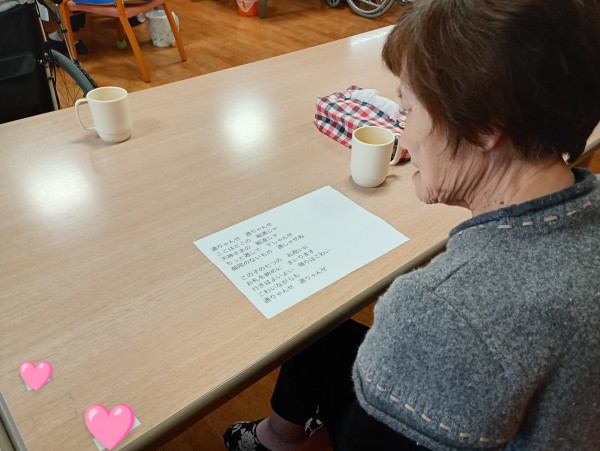 通りゃんせ 通りゃんせ
ここはどこの 細道じゃ
天神さまの 細道じゃ
ちっと通して 下しゃんせ
御用のないもの 通しゃせぬ
この子の七つの お祝いに
お札を納めに まいります
行きはよいよい 帰りはこわい
こわいながらも
通りゃんせ 通りゃんせ